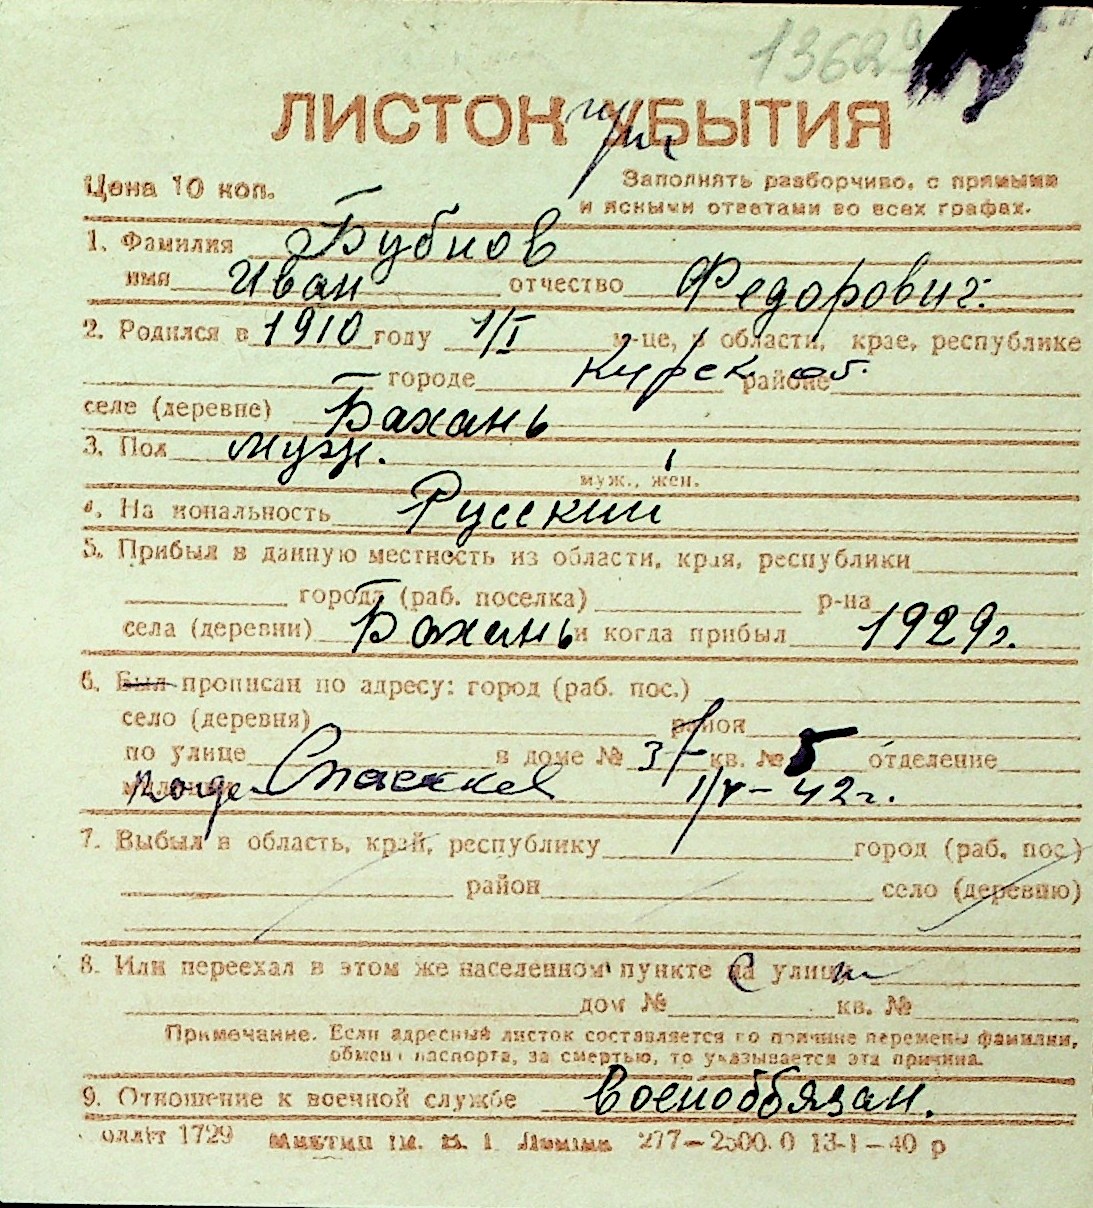 13629
ЛИСТОК УБЫТИЯ
Цена 10 коп.
Заполнять разборчиво, с прямыми
и ясными ответами во всех графах.
1. Фамилия Бубнов
имя Иван отчество Федорович
2. Родился в 1910 году 1/I м-це, в области, крае, республике
городе Курск. об. районе
селе (деревне) Бахань
3. Пол муж.
муж., жен.
4. Национальность Русский
5. Прибыл в данную местность из области, края, республики
города (раб. поселка) р-на
села (деревни) Бахань и когда прибыл 1929г.
6. Был прописан по адресу: город (раб. пос.)
село (деревня) район
по улице в доме № 37 кв. № 5 отделение
милиции Спасская 1/V-42г.
7. Выбыл в область, край, республику город (раб. пос.)
район село (деревню)
8. Или переехал в этом же населенном пункте на улицу
дом № кв. №
Примечание. Если адресный листок составляется по причине перемены фамилии,
обмена паспорта, за смертью, то указывается эта причина.
9. Отношение к военной службе военоббязан.
1729 277—2500.0 13-1—40 р